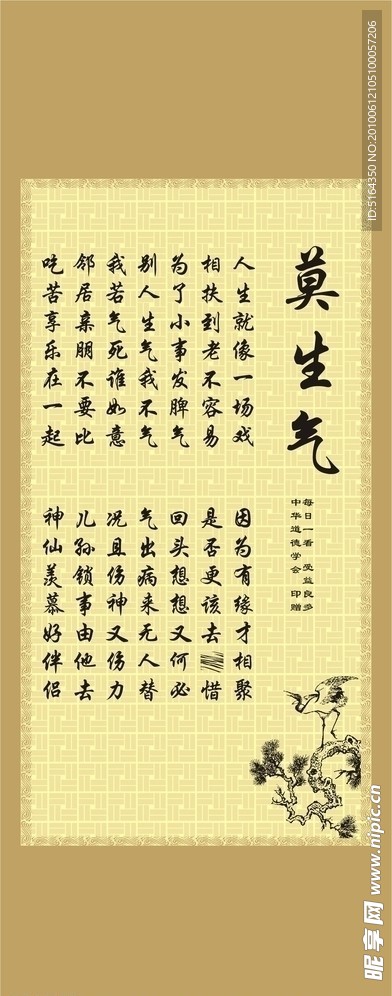 莫生气
每日一看 受益良多
中华道德学会 印赠
人生就像一场戏 因为有缘才相聚
相扶到老不容易 是否更该去惜
为了小事发脾气 回头想想又何必
别人生气我不气 气出病来无人替
我若气死谁如意 况且伤神又伤力
邻居亲朋不要比 儿孙锁事由他去
吃苦享乐在一起 神仙羡慕好伴侣
ID:5164350 NO:20100612105100057206
昵享网 www.nipic.cn